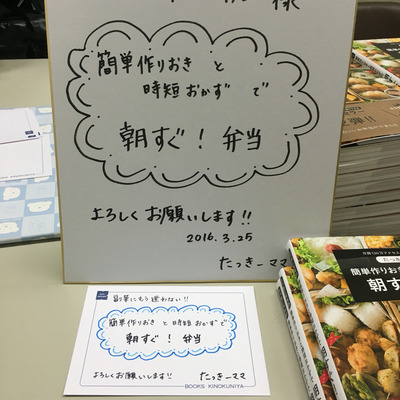 様
簡単作りおき と
時短おかず で
朝すぐ! 弁当
よろしくお願いします!!
2016.3.25
たっきーママ
副菜にもう迷わない!!
簡単作りおき と 時短おかずで
朝すぐ! 弁当
よろしくお願いします!!
たっきーママ
BOOKS KINOKUNIYA
簡単作りお
朝す